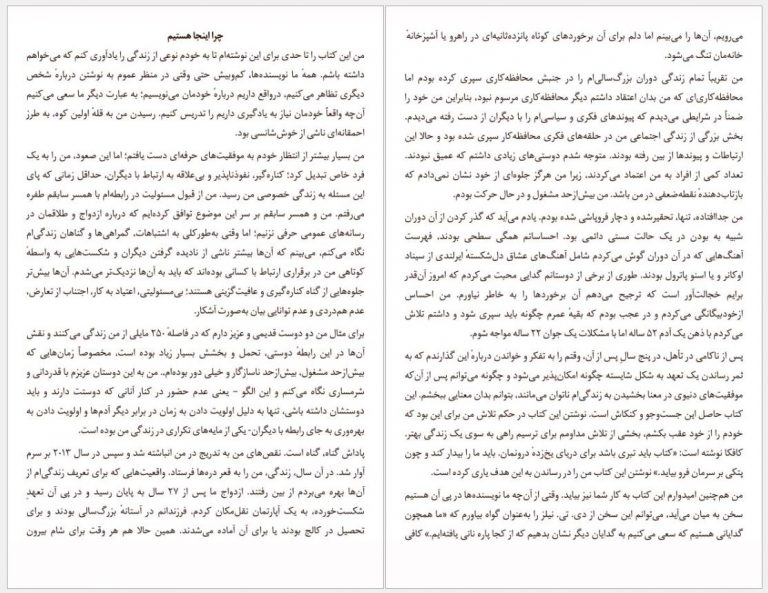 چرا اینجا هستیم
من این کتاب را تا حدی برای این نوشته‌ام تا به خودم نوعی از زندگی را یادآوری کنم که می‌خواهم
داشته باشم. همهٔ ما نویسنده‌ها، کم‌وبیش حتی وقتی در منظر عموم به نوشتن دربارهٔ شخص
دیگری تظاهر می‌کنیم، درواقع داریم دربارهٔ خودمان می‌نویسیم؛ به عبارت دیگر ما سعی می‌کنیم
آن‌چه واقعاً خودمان نیاز به یادگیری داریم را تدریس کنیم. رسیدن من به قلهٔ اولین کوه، به طرز
احمقانه‌ای ناشی از خوش‌شانسی بود.
من بسیار بیشتر از انتظار خودم به موفقیت‌های حرفه‌ای دست یافتم؛ اما این صعود، من را به یک
فرد خاص تبدیل کرد؛ کناره‌گیر، نفوذناپذیر و بی‌علاقه به ارتباط با دیگران، حداقل زمانی که پای
این مسئله به زندگی خصوصی من رسید. من از قبول مسئولیت در رابطه‌ام با همسر سابقم طفره
می‌رفتم. من و همسر سابقم بر سر این موضوع توافق کرده‌ایم که درباره ازدواج و طلاقمان در
رسانه‌های عمومی حرفی نزنیم؛ اما وقتی به‌طورکلی به اشتباهات، گمراهی‌ها و گناهان زندگی‌ام
نگاه می‌کنم، می‌بینم که آن‌ها بیشتر ناشی از نادیده گرفتن دیگران و شکست‌هایی به واسطهٔ
کوتاهی من در برقراری ارتباط با کسانی بوده‌اند که باید به آن‌ها نزدیک‌تر می‌شدم. آن‌ها بیش‌تر
جلوه‌هایی از گناه کناره‌گیری و عافیت‌گزینی هستند؛ بی‌مسئولیتی، اعتیاد به کار، اجتناب از تعارض،
عدم هم‌دردی و عدم توانایی بیان به‌صورت آشکار.
برای مثال من دو دوست قدیمی و عزیز دارم که در فاصلهٔ ۲۵۰ مایلی از من زندگی می‌کنند و نقش
آن‌ها در این رابطهٔ دوستی، تحمل و بخشش بسیار زیاد بوده است، مخصوصاً زمان‌هایی که
بیش‌ازحد مشغول، بیش‌ازحد ناسازگار و خیلی دور بوده‌ام.. من به این دوستان عزیزم با قدردانی و
شرمساری نگاه می‌کنم و این الگو – یعنی عدم حضور در کنار آنانی که دوستت دارند و باید
دوستشان داشته باشی، تنها به دلیل اولویت دادن به زمان در برابر دیگر آدم‌ها و اولویت دادن به
بهره‌وری به جای رابطه با دیگران- یکی از مایه‌های تکراری در زندگی من بوده است.
پاداش گناه، گناه است. نقص‌های من به تدریج در من انباشته شد و سپس در سال ۲۰۱۳ بر سرم
آوار شد. در آن سال، زندگی، من را به قعر دره‌ها فرستاد. واقعیت‌هایی که برای تعریف زندگی‌ام از
آن‌ها بهره می‌بردم از بین رفتند. ازدواج ما پس از ۲۷ سال به پایان رسید و در پی آن تعهدِ
شکست‌خورده، به یک آپارتمان نقل‌مکان کردم. فرزندانم در آستانهٔ بزرگ‌سالی بودند و برای
تحصیل در کالج بودند یا برای آن آماده می‌شدند. همین حالا هم هر وقت برای شام بیرون
می‌رویم، آن‌ها را می‌بینم اما دلم برای آن برخوردهای کوتاه پانزده‌ثانیه‌ای در راهرو یا آشپزخانهٔ
خانه‌مان تنگ می‌شود.
من تقریباً تمام زندگی دوران بزرگ‌سالی‌ام را در جنبش محافظه‌کاری سپری کرده بودم اما
محافظه‌کاری‌ای که من بدان اعتقاد داشتم دیگر محافظه‌کاری مرسوم نبود، بنابراین من خود را
ضمناً در شرایطی می‌دیدم که پیوندهای فکری و سیاسی‌ام را با دیگران از دست رفته می‌دیدم.
بخش بزرگی از زندگی اجتماعی من در حلقه‌های فکری محافظه‌کار سپری شده بود و حالا این
ارتباطات و پیوندها از بین رفته بودند. متوجه شدم دوستی‌های زیادی داشتم که عمیق نبودند.
تعداد کمی از افراد به من اعتماد می‌کردند، زیرا من هرگز جلوه‌ای از خود نشان نمی‌دادم که
بازتاب‌دهندهٔ نقطه‌ضعفی در من باشد. من بیش‌ازحد مشغول و در حال حرکت بودم.
من جداافتاده، تنها، تحقیرشده و دچار فروپاشی شده بودم. یادم می‌آید که گذر کردن از آن دوران
شبیه به بودن در یک حالت مستی دائمی بود. احساساتم همگی سطحی بودند. فهرست
آهنگ‌هایی که در آن دوران گوش می‌کردم شامل آهنگ‌های عشاق دل‌شکستهٔ ایرلندی از سیناد
اوکانر و یا اسنو پاترول بودند. طوری از برخی از دوستانم گدایی محبت می‌کردم که امروز آن‌قدر
برایم خجالت‌آور است که ترجیح می‌دهم آن برخوردها را به خاطر نیاورم. من احساس
ازخودبیگانگی می‌کردم و در عجب بودم که بقیهٔ عمرم چگونه باید سپری شود و داشتم تلاش
می‌کردم با ذهن یک آدم ۵۲ ساله اما با مشکلات یک جوان ۲۲ ساله مواجه شوم.
پس از ناکامی در تأهل، در پنج سال پس از آن، وقتم را به تفکر و خواندن دربارهٔ این گذارندم که به
ثمر رساندن یک تعهد به شکل شایسته چگونه امکان‌پذیر می‌شود و چگونه می‌توانم پس از آن‌که
موفقیت‌های دنیوی در معنا بخشیدن به زندگی‌ام ناتوان می‌مانند، بتوانم بدان معنایی ببخشم. این
کتاب حاصل این جست‌وجو و کنکاش است. نوشتن این کتاب در حکم تلاش من برای این بود که
خودم را از خود عقب بکشم، بخشی از تلاش مداومم برای ترسیم راهی به سوی یک زندگی بهتر.
کافکا نوشته است: «کتاب باید تبری باشد برای دریای یخ‌زدهٔ درونمان. باید ما را بیدار کند و چون
پتکی بر سرمان فرو بیاید.» نوشتن این کتاب من را در رساندن به این هدف یاری کرده است.
من هم‌چنین امیدوارم این کتاب به کار شما نیز بیاید. وقتی از آن‌چه ما نویسنده‌ها در پی آن هستیم
سخن به میان می‌آید، می‌توانم این سخن از دی. تی. نیلز را به‌عنوان گواه بیاورم که «ما همچون
گدایانی هستیم که سعی می‌کنیم به گدایان دیگر نشان بدهیم که از کجا پاره نانی یافته‌ایم.» کافی